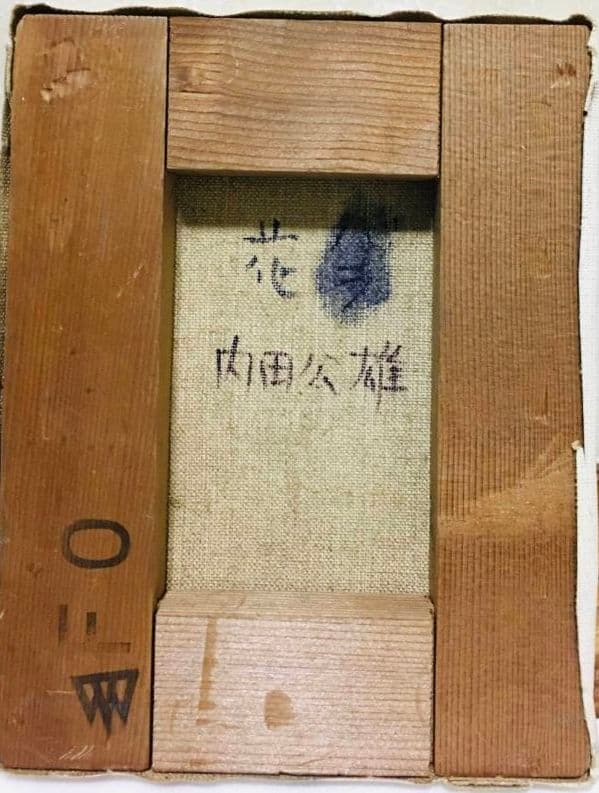 花
内田公雄
F0